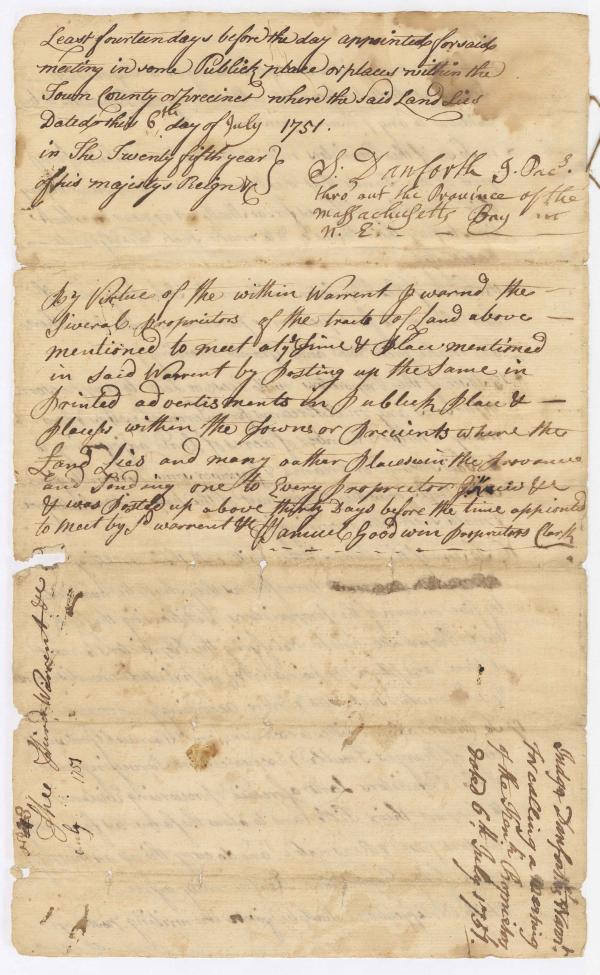 Least fourteen days before the day appointed for said
meeting in some Publick place or places within the
Town County or precinct where the said Land Lies
Dated this 6th day of July 1751.
in The Twenty fifth year
of his majestys Reign &c
S. Danforth J. Pacs.
thro out the Province of the
massachusetts Bay in
N. E.
By Virtue of the within Warrent I warnd the
Several proprietors of the tracts of Land above
mentioned to meet at ye time & Place mentioned
in said Warrent by Posting up the Same in
Printed advertisments in Publick Place &
Places within the Towns or Precints where the
Land Lies and many oather Places in the Provance
and Sending one to Every Proprietor I knew &c
& was Posted up above thirty Days before the time appionted
to meet by sd warrent & Samuel Goodwin proprietors Clerk
Thee Warrent &c
July 1751
Judge Danforths Warrt.
for calling a meeting
of the Kenk Propriety
dated 6th July 1751.